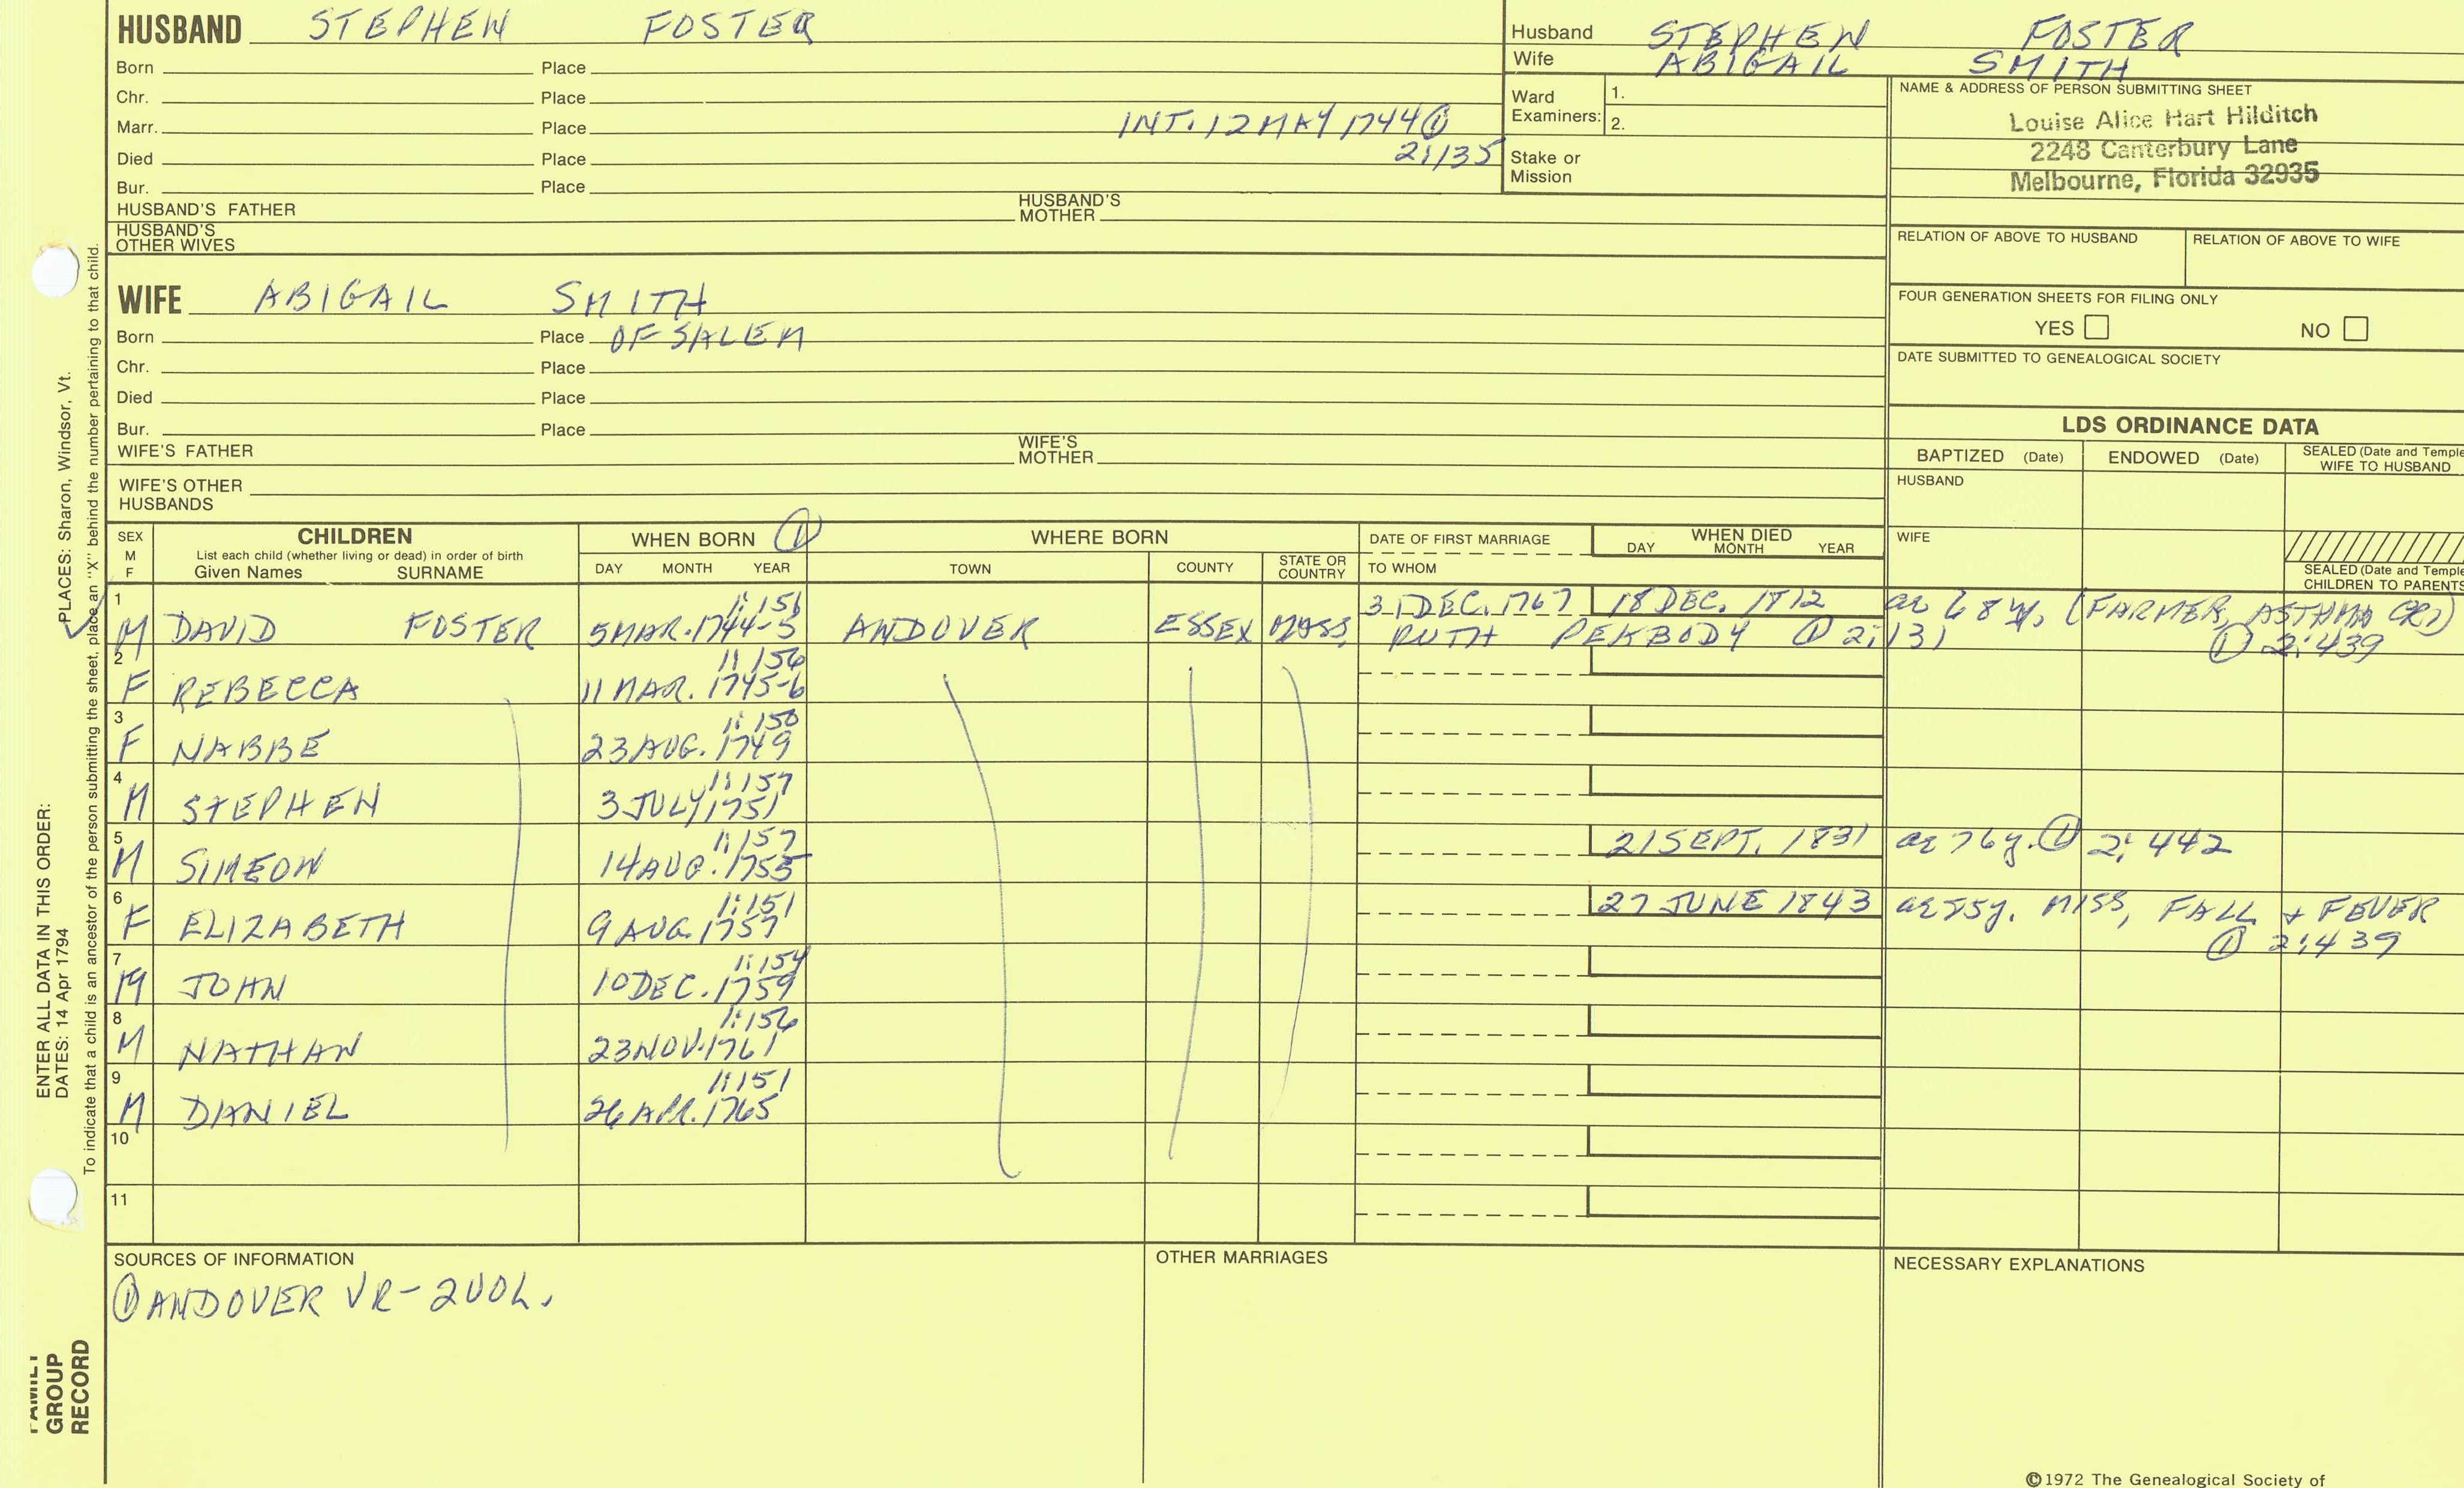 HUSBAND STEPHEN FOSTER
Born Place
Chr. Place
Marr. Place INT. 12 MAY 1744 ①
Died Place 2:135
Bur. Place
HUSBAND'S FATHER HUSBAND'S MOTHER
HUSBAND'S OTHER WIVES
Husband STEPHEN FOSTER
Wife ABIGAIL SMITH
Ward Examiners: 1.
2.
Stake or Mission
NAME & ADDRESS OF PERSON SUBMITTING SHEET
Louise Alice Hart Hilditch
2248 Canterbury Lane
Melbourne, Florida 32935
RELATION OF ABOVE TO HUSBAND RELATION OF ABOVE TO WIFE
FOUR GENERATION SHEETS FOR FILING ONLY
YES NO
DATE SUBMITTED TO GENEALOGICAL SOCIETY
WIFE ABIGAIL SMITH
Born Place OF SALEM
Chr. Place
Died Place
Bur. Place
WIFE'S FATHER WIFE'S MOTHER
WIFE'S OTHER HUSBANDS
LDS ORDINANCE DATA
BAPTIZED (Date) ENDOWED (Date) SEALED (Date and Temple
WIFE TO HUSBAND
HUSBAND
WIFE
SEALED (Date and Temple
CHILDREN TO PARENTS
SEX M F CHILDREN WHEN BORN ① WHERE BORN DATE OF FIRST MARRIAGE WHEN DIED
List each child (whether living or dead) in order of birth
Given Names SURNAME DAY MONTH YEAR TOWN COUNTY STATE OR COUNTRY TO WHOM DAY MONTH YEAR
1 1:151 31 DEC. 1767 18 DEC. 1812 ae 68 y. (FARMER, ASTHMA CR1)
M DAVID FOSTER 5 MAR. 1744-5 ANDOVER ESSEX MASS. RUTH PEABODY ① 2:131 ① 2:439
2 1:156
F REBECCA 11 MAR. 1745-6
3 1:150
F NABBE 23 AUG. 1749
4 1:157
M STEPHEN 3 JULY 1751
5 1:157
M SIMEON 14 AUG. 1755 21 SEPT. 1831 ae 76 y. ① 2:442
6 1:151 27 JUNE 1843 ae 85 y. MISS, FALL & FEVER
F ELIZABETH 9 AUG. 1757 ① 2:439
7 1:154
M JOHN 10 DEC. 1759
8 1:156
M NATHAN 23 NOV. 1761
9 1:151
M DANIEL 26 APR. 1765
10
11
SOURCES OF INFORMATION
① ANDOVER VR - 2 VOL.
OTHER MARRIAGES
NECESSARY EXPLANATIONS
©1972 The Genealogical Society of
ENTER ALL DATA IN THIS ORDER:
DATES: 14 Apr 1794 PLACES: Sharon, Windsor, Vt.
To indicate that a child is an ancestor of the person submitting the sheet, place an "X" behind the number pertaining to that child.
FAMILY
GROUP
RECORD